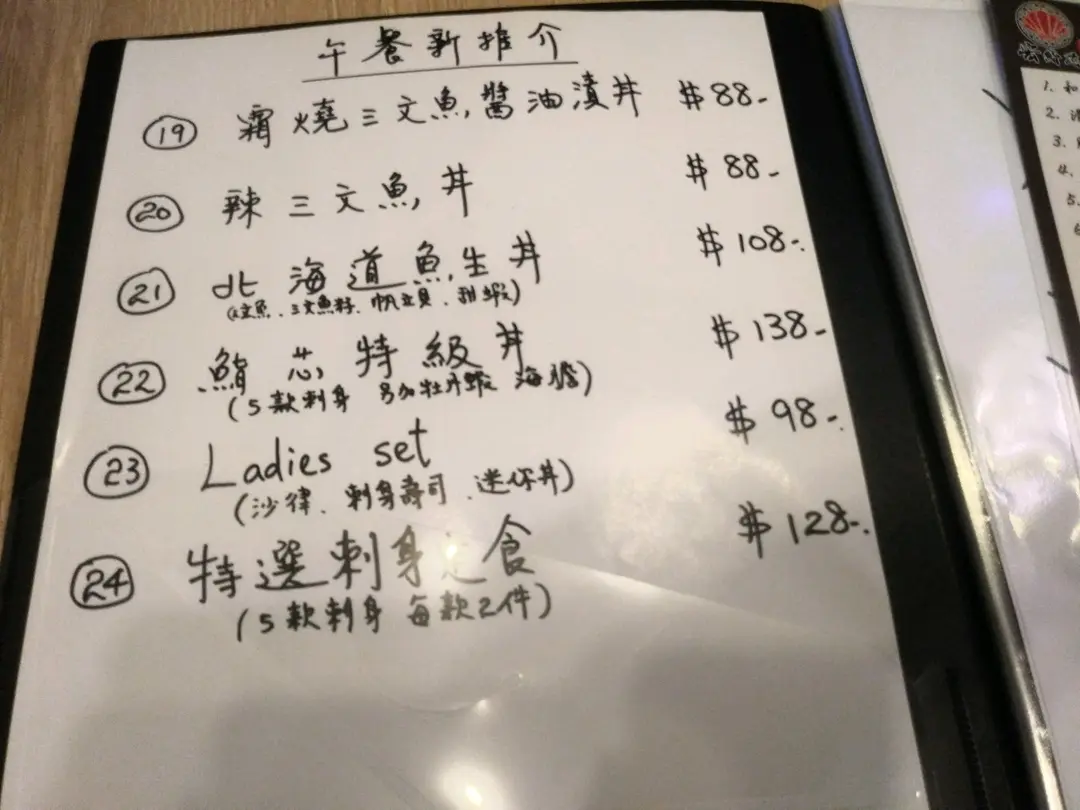 午餐新推介
19 霜燒三文魚醬油漬丼 $88-
20 辣三文魚丼 $88-
21 北海道魚生丼 $108-
(三文魚、三文魚籽、帆立貝、甜蝦)
22 鮨芯特級丼 $138-
(5款刺身 另加牡丹蝦 海膽)
23 Ladies set $98-
(沙律、刺身壽司、迷你丼)
24 特選刺身定食 $128-
(5款刺身 每款2件)
1. 和
2.
3.
4.
5.
6